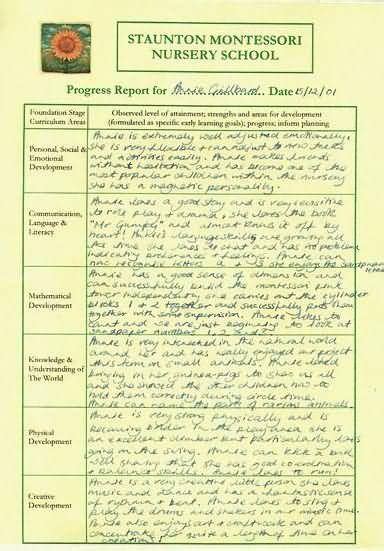 STAUNTON MONTESSORI
NURSERY SCHOOL
Progress Report for Annie Date 15/12/01
Foundation Stage
Curriculum Areas
Observed level of attainment; strengths and areas for development
(formulated as specific early learning goals); progress; inform planning
Personal, Social &
Emotional
Development
Annie is extremely well adjusted emotionally,
she is very flexible + can adjust to new tasks
and activities easily. Annie makes friends
without hesitation and has become one of the
most popular children within the nursery
she has a magnetic personality.
Communication,
Language &
Literacy
Annie loves a good story and is very receptive
to role play + drama, she loves the book
"Mr Gumpy" and almost knows it off by
heart! Annie's language skills are growing all
the time she loves to chat and has no problem
indicating preferences + feelings. Annie can
now recognise letters she enjoys the sandpaper
Mathematical
Development
Annie has a good sense of dimension and
can successfully build the montessori pink
tower independently she carries out the cylinder
blocks 1 + 2 together and successfully puts them
together with some supervision. Annie likes to
count and we are just beginning to look at
sandpaper numbers 1, 2 and 3.
Knowledge &
Understanding of
The World
Annie is very interested in the natural world
around her and has really enjoyed our project
this term on small animals. Annie loved
bringing in her guinea-pigs to show us all
and she showed the other children how to
hold them correctly during circle time.
Annie can name the parts of various animals.
Physical
Development
Annie is very strong physically and is
becoming bolder in the play area she is
an excellent climber but particularly loves
going on the swing. Annie can kick a ball
well showing that she has good co-ordination
+ balancing skills. Annie loves to run!
Creative
Development
Annie is a very creative little person she loves
music and dance and has a fantastic sense
of rhythm + beat. Annie loves to sing +
play the drums and shakers in our music time.
Annie also enjoys art + craft work and can
concentrate for quite a length of time on her
creations!